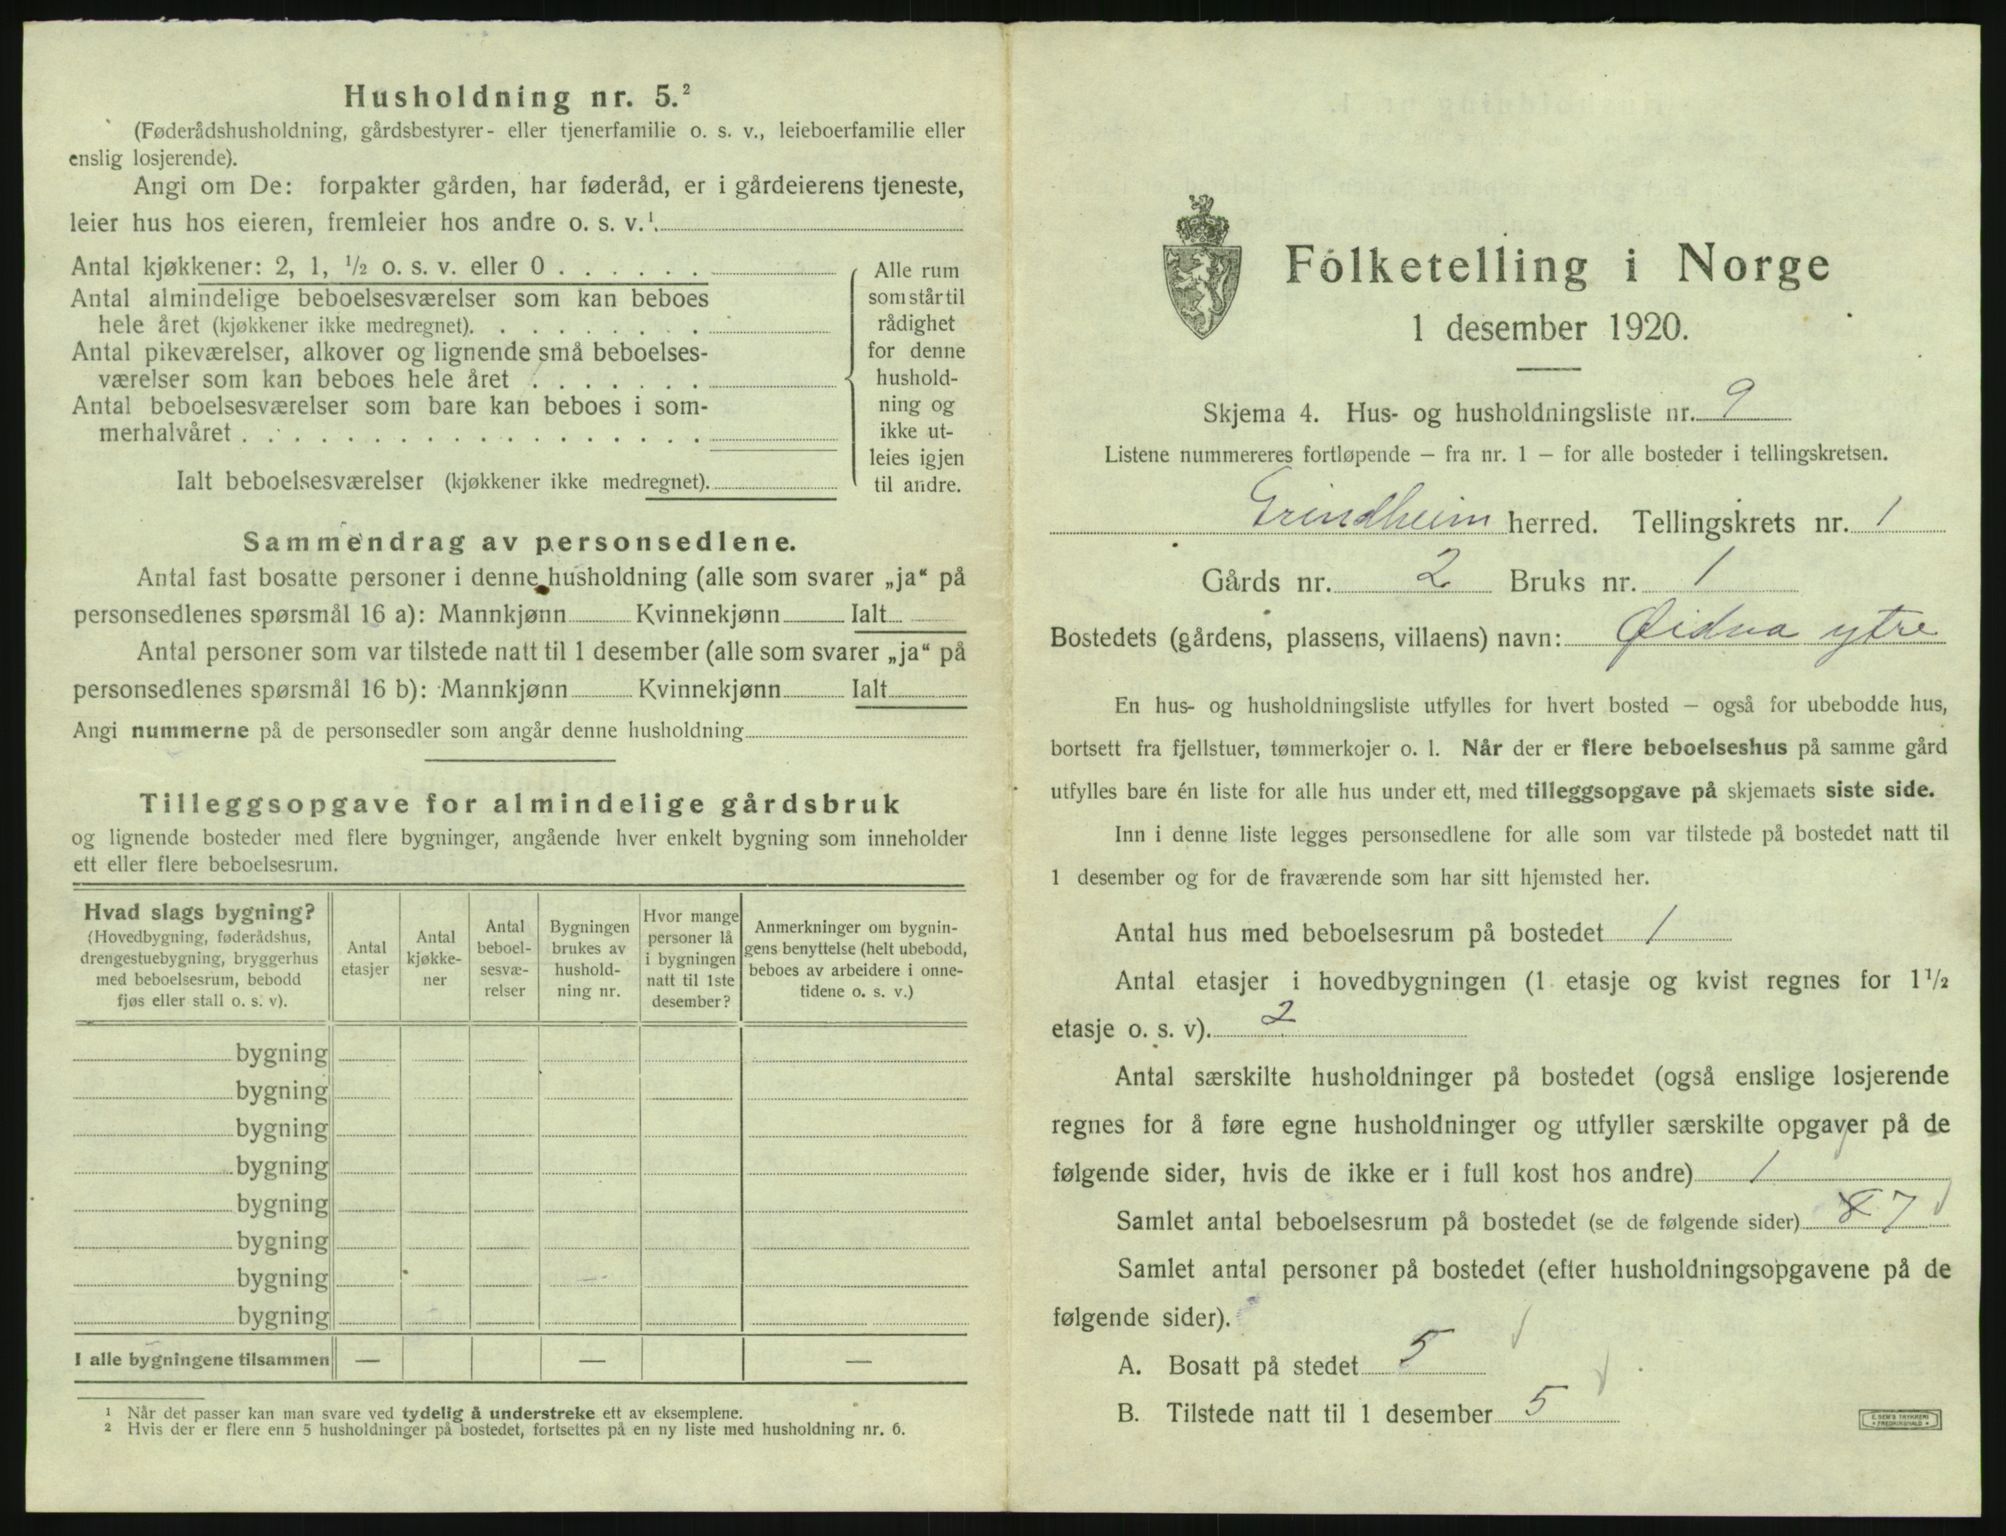 Husholdning nr. 5.²
(Føderådshusholdning, gårdsbestyrer- eller tjenerfamilie o. s. v., leieboerfamilie eller
enslig losjerende).
Angi om De: forpakter gården, har føderåd, er i gårdeierens tjeneste,
leier hus hos eieren, fremleier hos andre o. s. v.¹
Antal kjøkkener: 2, 1, ½ o. s. v. eller 0 . . . . . .
Antal almindelige beboelsesværelser som kan beboes
hele året (kjøkkener ikke medregnet). . . . . . . . .
Antal pikeværelser, alkover og lignende små beboelses-
værelser som kan beboes hele året . . . . . . .
Antal beboelsesværelser som bare kan beboes i som-
merhalvåret . . . . . . . . . . . . . . . . . .
Ialt beboelsesværelser (kjøkkener ikke medregnet).
Alle rum
som står til
rådighet
for denne
hushold-
ning og
ikke ut-
leies igjen
til andre.
Sammendrag av personsedlene.
Antal fast bosatte personer i denne husholdning (alle som svarer „ja“ på
personsedlenes spørsmål 16 a): Mannkjønn Kvinnekjønn Ialt
Antal personer som var tilstede natt til 1 desember (alle som svarer „ja“ på
personsedlenes spørsmål 16 b): Mannkjønn Kvinnekjønn Ialt
Angi nummerne på de personsedler som angår denne husholdning
Tilleggsopgave for almindelige gårdsbruk
og lignende bosteder med flere bygninger, angående hver enkelt bygning som inneholder
ett eller flere beboelsesrum.
Hvad slags bygning?
(Hovedbygning, føderådshus,
drengestuebygning, bryggerhus
med beboelsesrum, bebodd
fjøs eller stall o. s. v).
Antal
etasjer
Antal
kjøkke-
ner
Antal
beboel-
sesvæ-
relser
Bygningen
brukes av
hushold-
ning nr.
Hvor mange
personer lå
i bygningen
natt til 1ste
desember?
Anmerkninger om bygnin-
gens benyttelse (helt ubebodd,
beboes av arbeidere i onne-
tidene o. s. v.)
bygning
bygning
bygning
bygning
bygning
bygning
bygning
bygning
I alle bygningene tilsammen — — —
¹ Når det passer kan man svare ved tydelig å understreke ett av eksemplene.
² Hvis der er flere enn 5 husholdninger på bostedet, fortsettes på en ny liste med husholdning nr. 6.
Folketelling i Norge
1 desember 1920.
Skjema 4. Hus- og husholdningsliste nr. 9
Listene nummereres fortløpende – fra nr. 1 – for alle bosteder i tellingskretsen.
Grindheim herred. Tellingskrets nr. 1
Gårds nr. 2 Bruks nr. 1
Bostedets (gårdens, plassens, villaens) navn: Øidna ytre
En hus- og husholdningsliste utfylles for hvert bosted – også for ubebodde hus,
bortsett fra fjellstuer, tømmerkojer o. l. Når der er flere beboelseshus på samme gård
utfylles bare én liste for alle hus under ett, med tilleggsopgave på skjemaets siste side.
Inn i denne liste legges personsedlene for alle som var tilstede på bostedet natt til
1 desember og for de fraværende som har sitt hjemsted her.
Antal hus med beboelsesrum på bostedet 1
Antal etasjer i hovedbygningen (1 etasje og kvist regnes for 1½
etasje o. s. v). 2
Antal særskilte husholdninger på bostedet (også enslige losjerende
regnes for å føre egne husholdninger og utfyller særskilte opgaver på de
følgende sider, hvis de ikke er i full kost hos andre) 1
Samlet antal beboelsesrum på bostedet (se de følgende sider) 8 7
Samlet antal personer på bostedet (efter husholdningsopgavene på de
følgende sider).
A. Bosatt på stedet 5
B. Tilstede natt til 1 desember 5
E. SEM'S TRYKKERI
FREDRIKSHALD